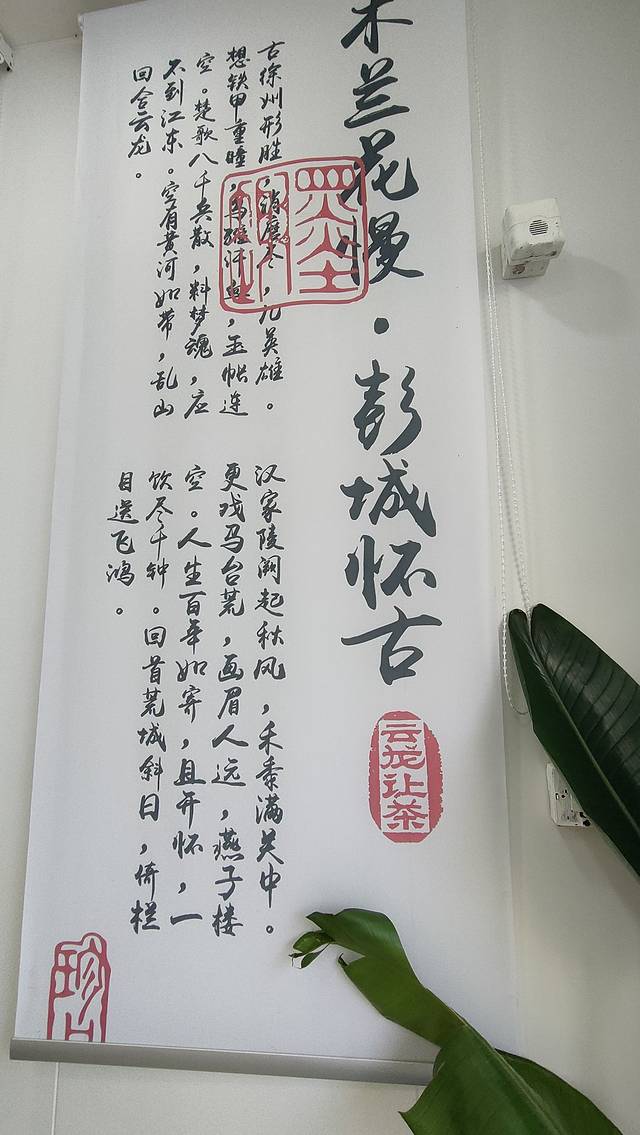 木兰花慢·彭城怀古
云龙让茶
古徐州形胜，消磨尽，几英雄。
想铁甲重瞳，乌骓汗血，玉帐连
空。楚歌八千兵散，料梦魂，应
不到江东。空有黄河如带，乱山
回合云龙。
汉家陵阙起秋风，禾黍满关中。
更戏马台荒，画眉人远，燕子楼
空。人生百年如寄，且开怀，一
饮尽千钟。回首荒城斜日，倚栏
目送飞鸿。
珍